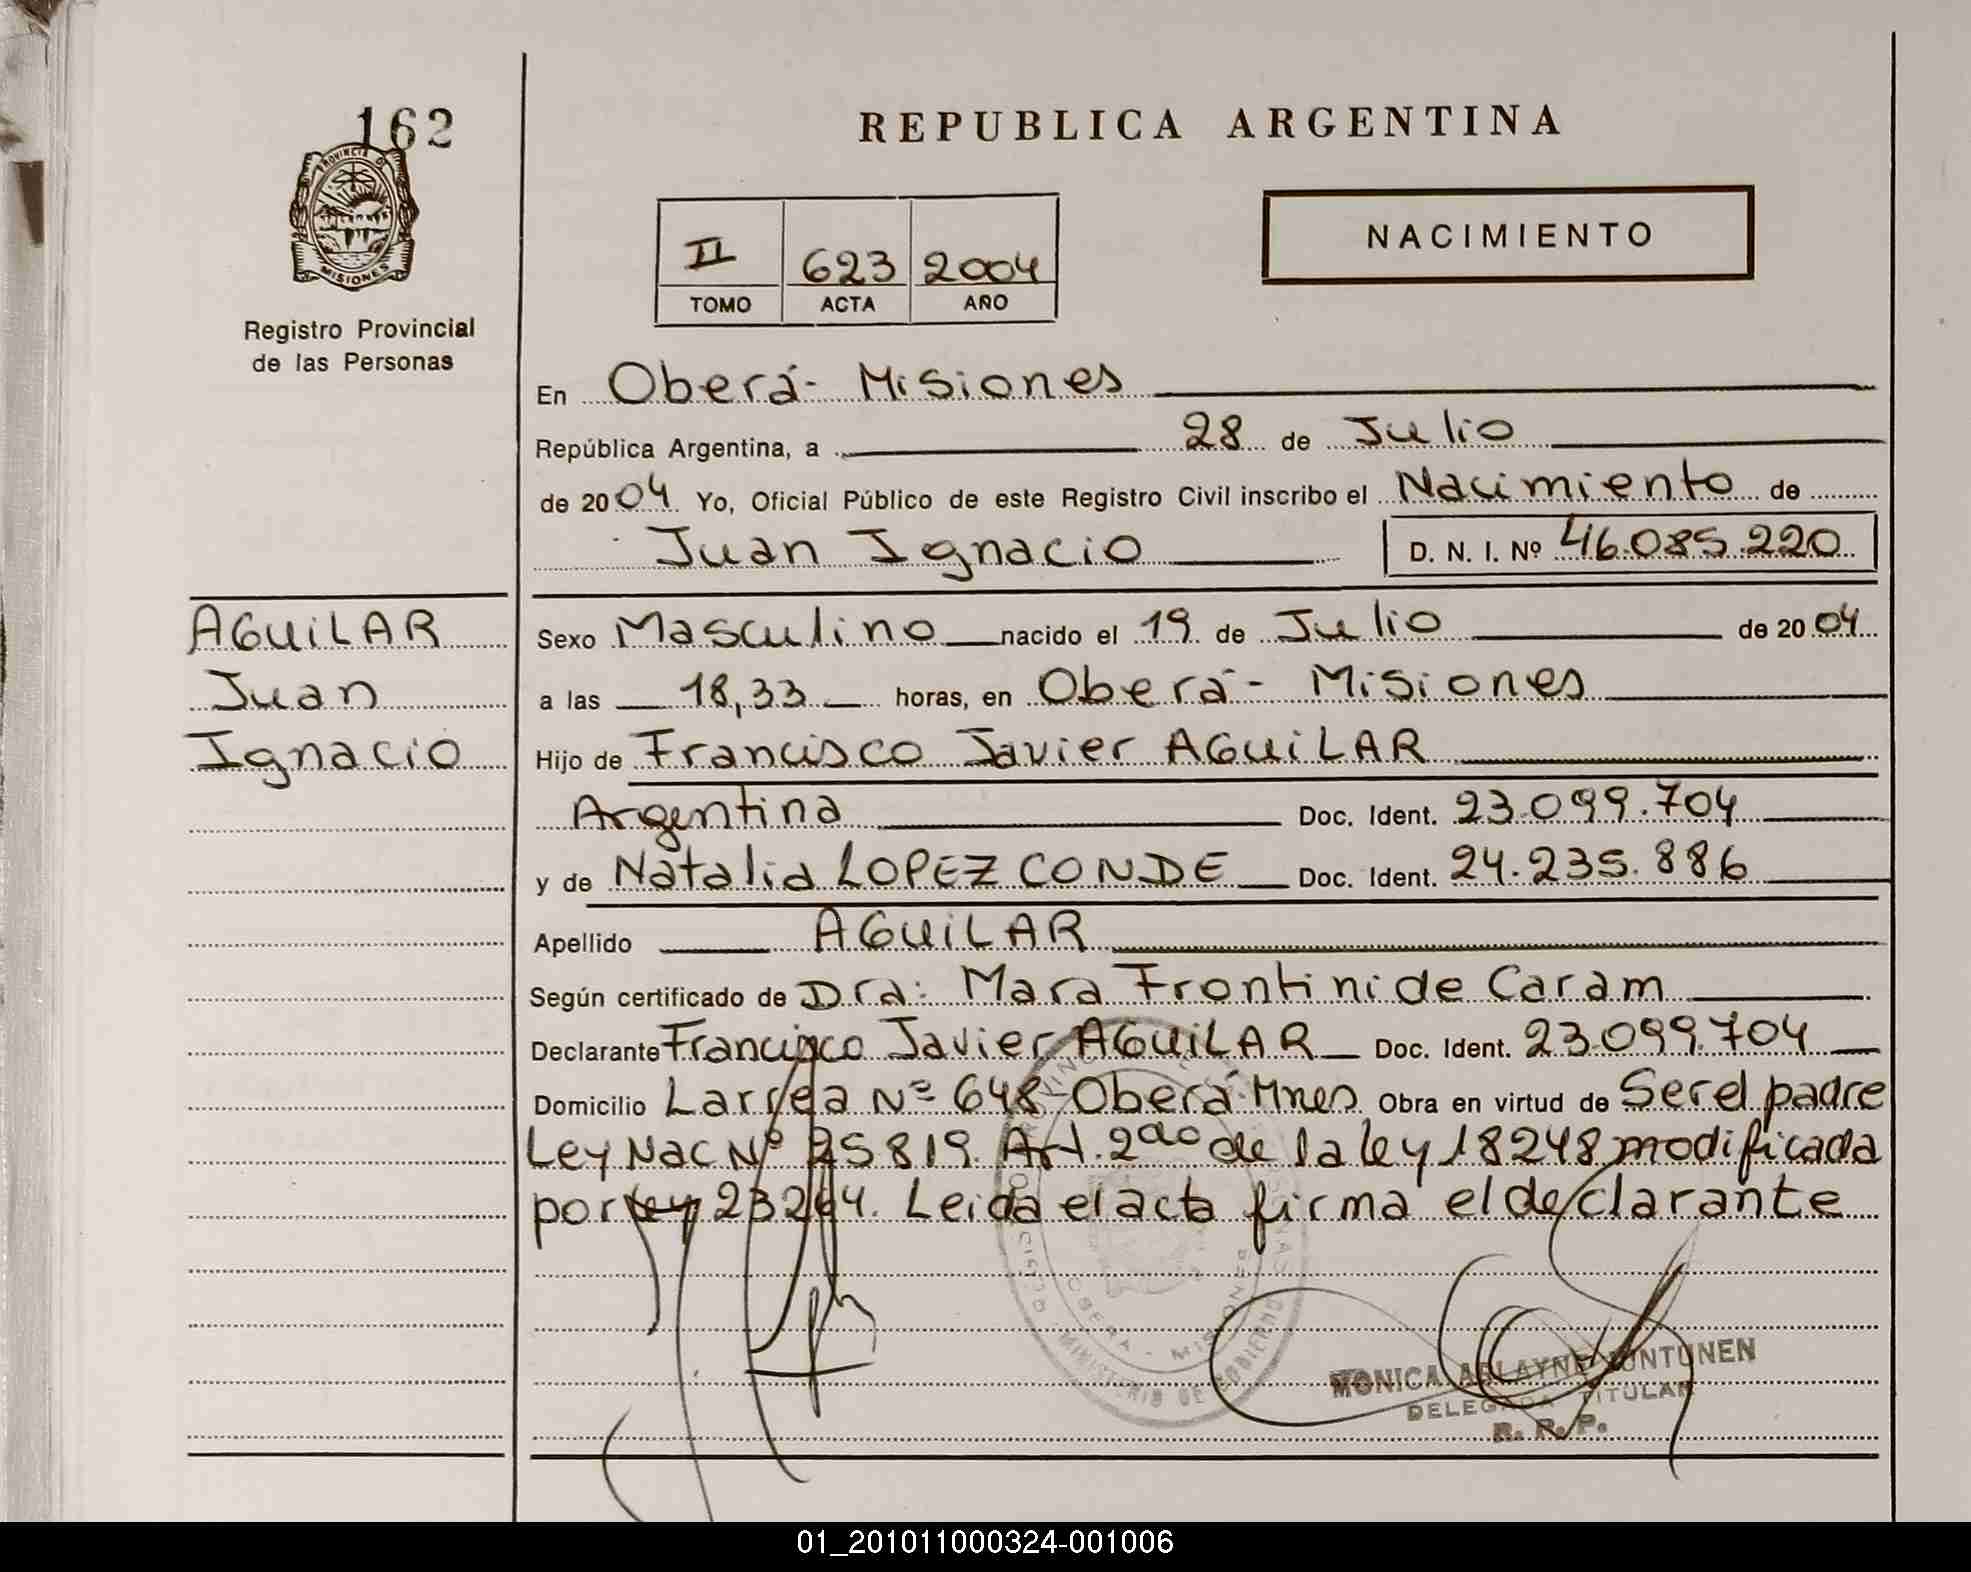 162
PROVINCIA DE
MISIONES
Registro Provincial
de las Personas
REPUBLICA ARGENTINA
II 623 2004
TOMO ACTA AÑO
NACIMIENTO
En Oberá- Misiones
República Argentina, a 28 de Julio
de 2004 Yo, Oficial Público de este Registro Civil inscribo el Nacimiento de
Juan Ignacio D. N. I. Nº 46.085.220
AGUiLAR
Juan
Ignacio
Sexo Masculino nacido el 19 de Julio de 2004
a las 18,33 horas, en Oberá- Misiones
Hijo de Francisco Javier AGUiLAR
Argentina Doc. Ident. 23.099.704
y de Natalia LOPEZ CONDE Doc. Ident. 24.235.886
Apellido AGUiLAR
Según certificado de Dra: Mara Frontini de Caram
Declarante Francisco Javier AGUiLAR Doc. Ident. 23.099.704
Domicilio Larrea Nº 648-Oberá-Mnes Obra en virtud de Ser el padre
Ley Nac Nº 25819. Art. 2do de la ley 18248 modificada
por ley 23264. Leida el acta firma el declarante
OBERA - MISIONES
MINISTERIO DE GOBIERNO
MONICA ARLAYNE KUNTUNEN
DELEGADA TITULAR
R. R. P.
01_201011000324-001006